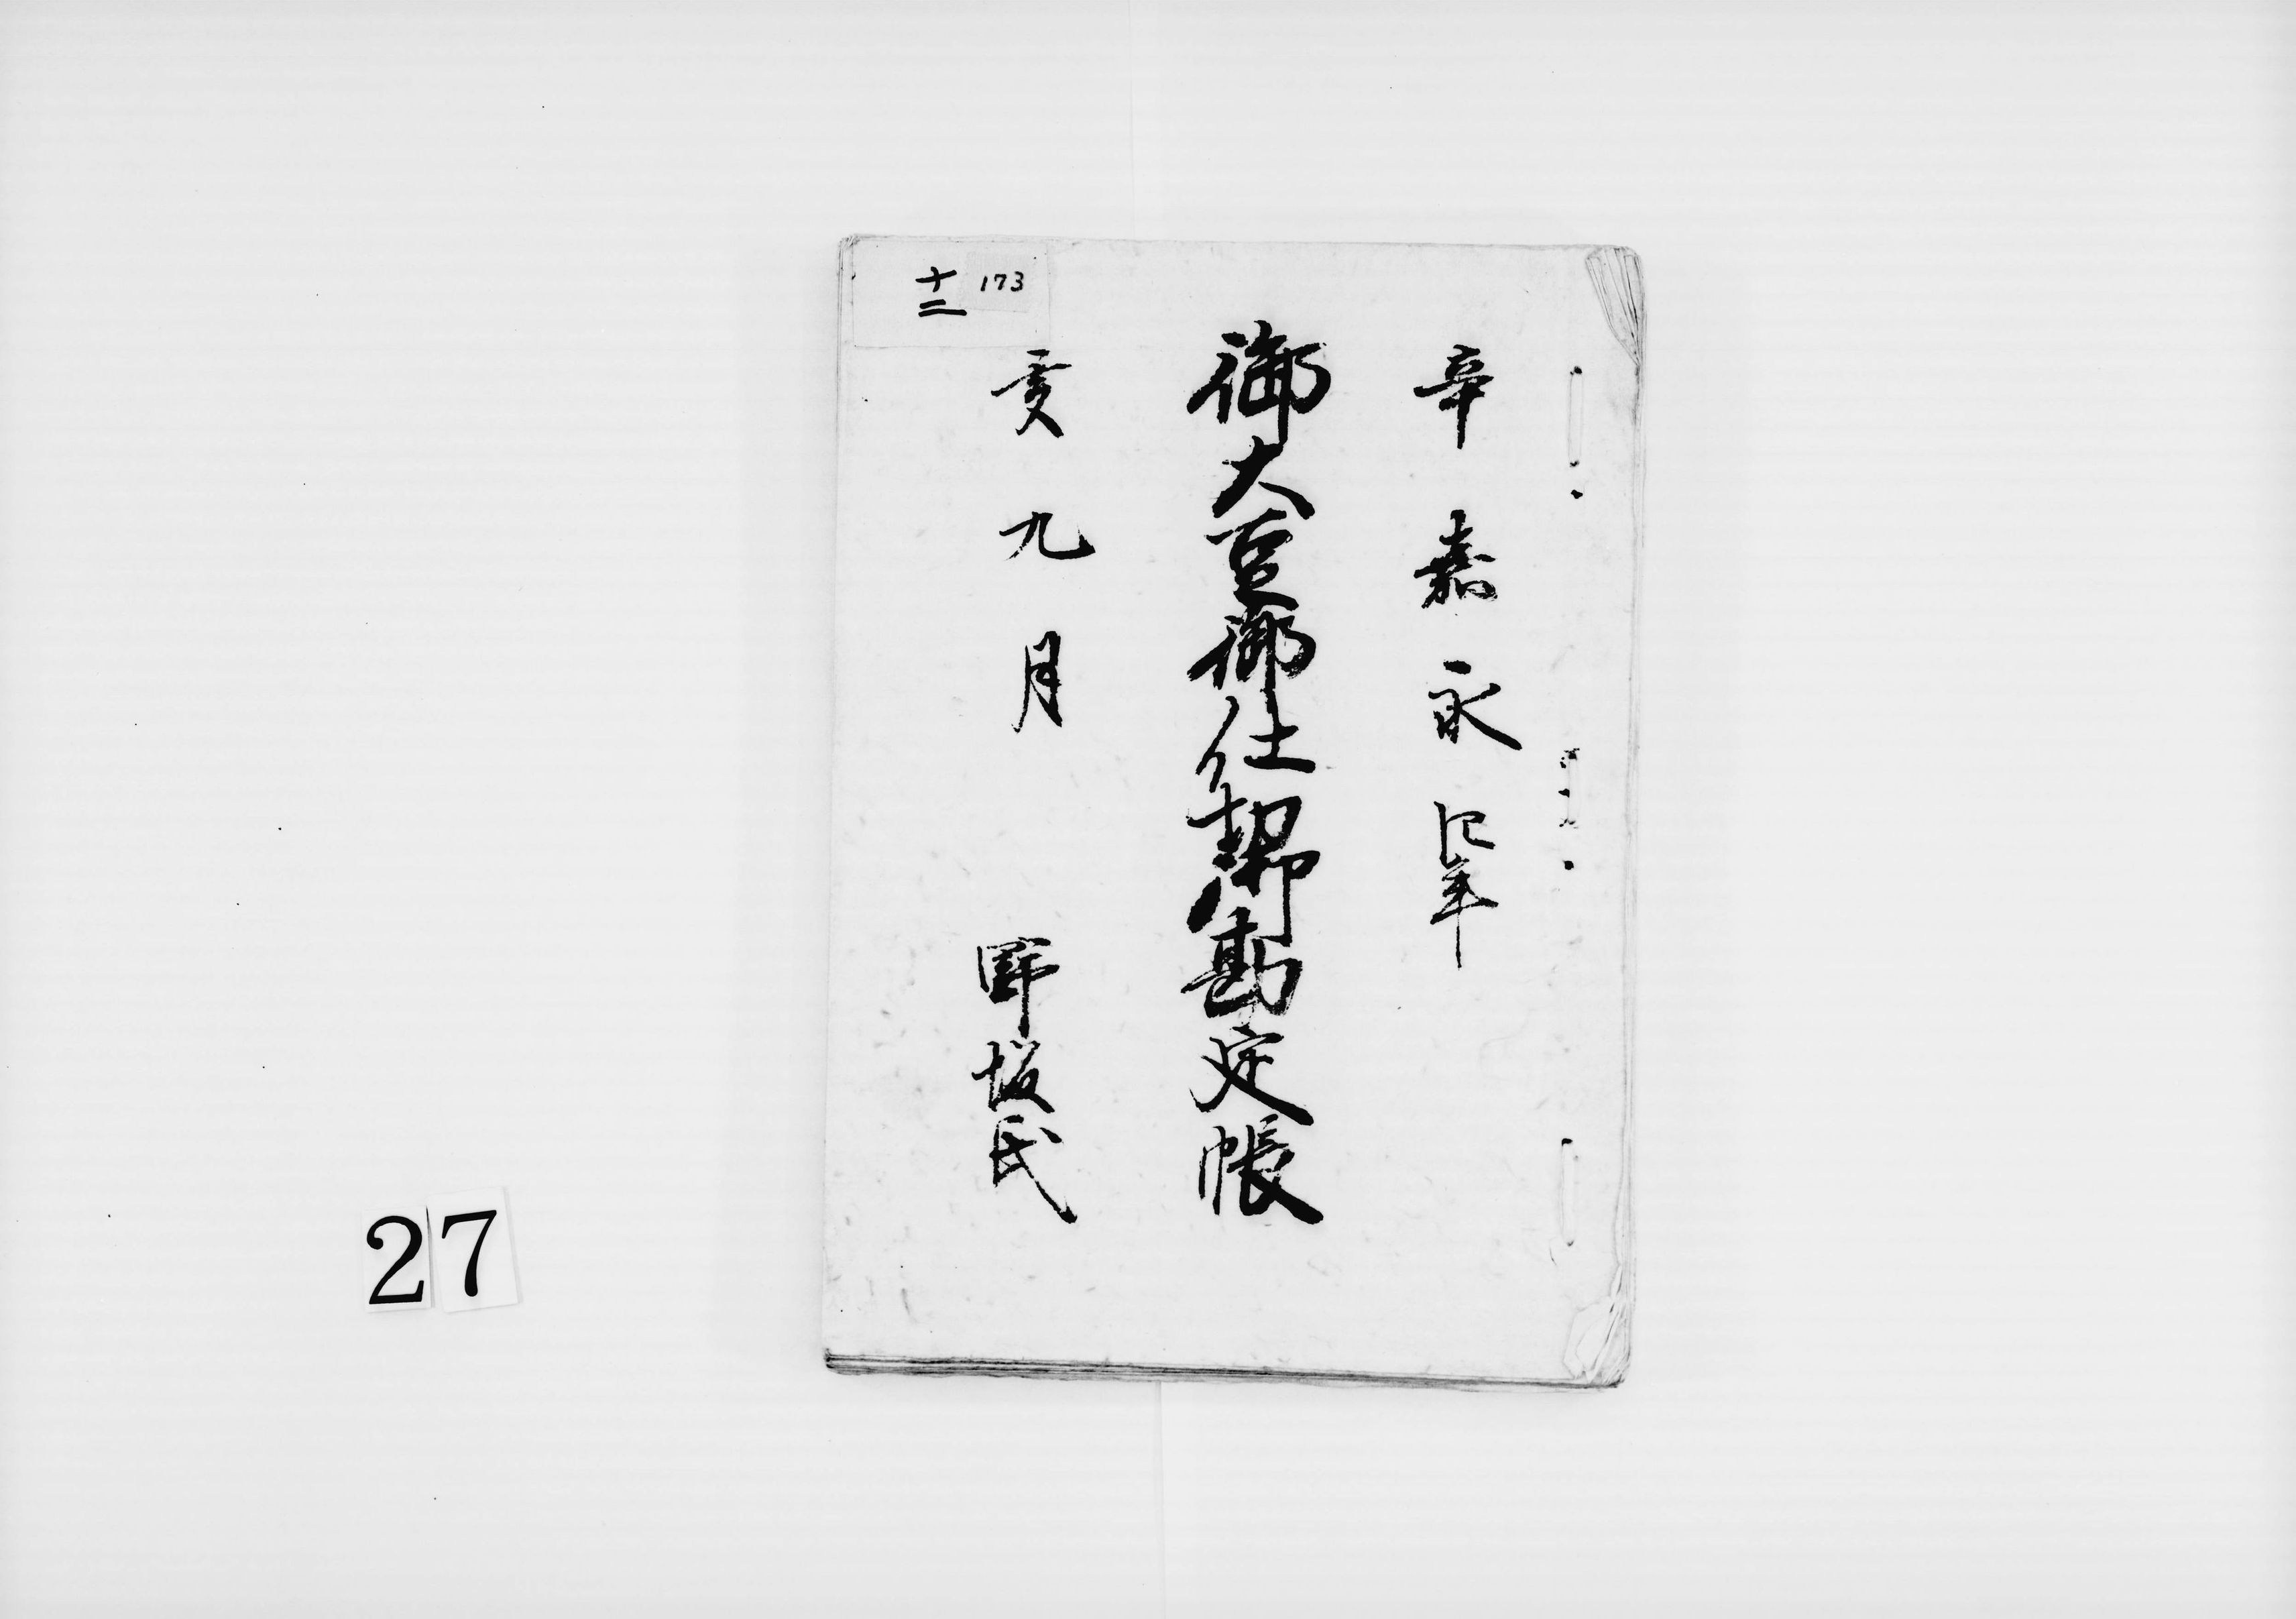 辛 嘉永四年
御大豆御仕契御勘定帳
亥九月 野坂氏
173
十二
27